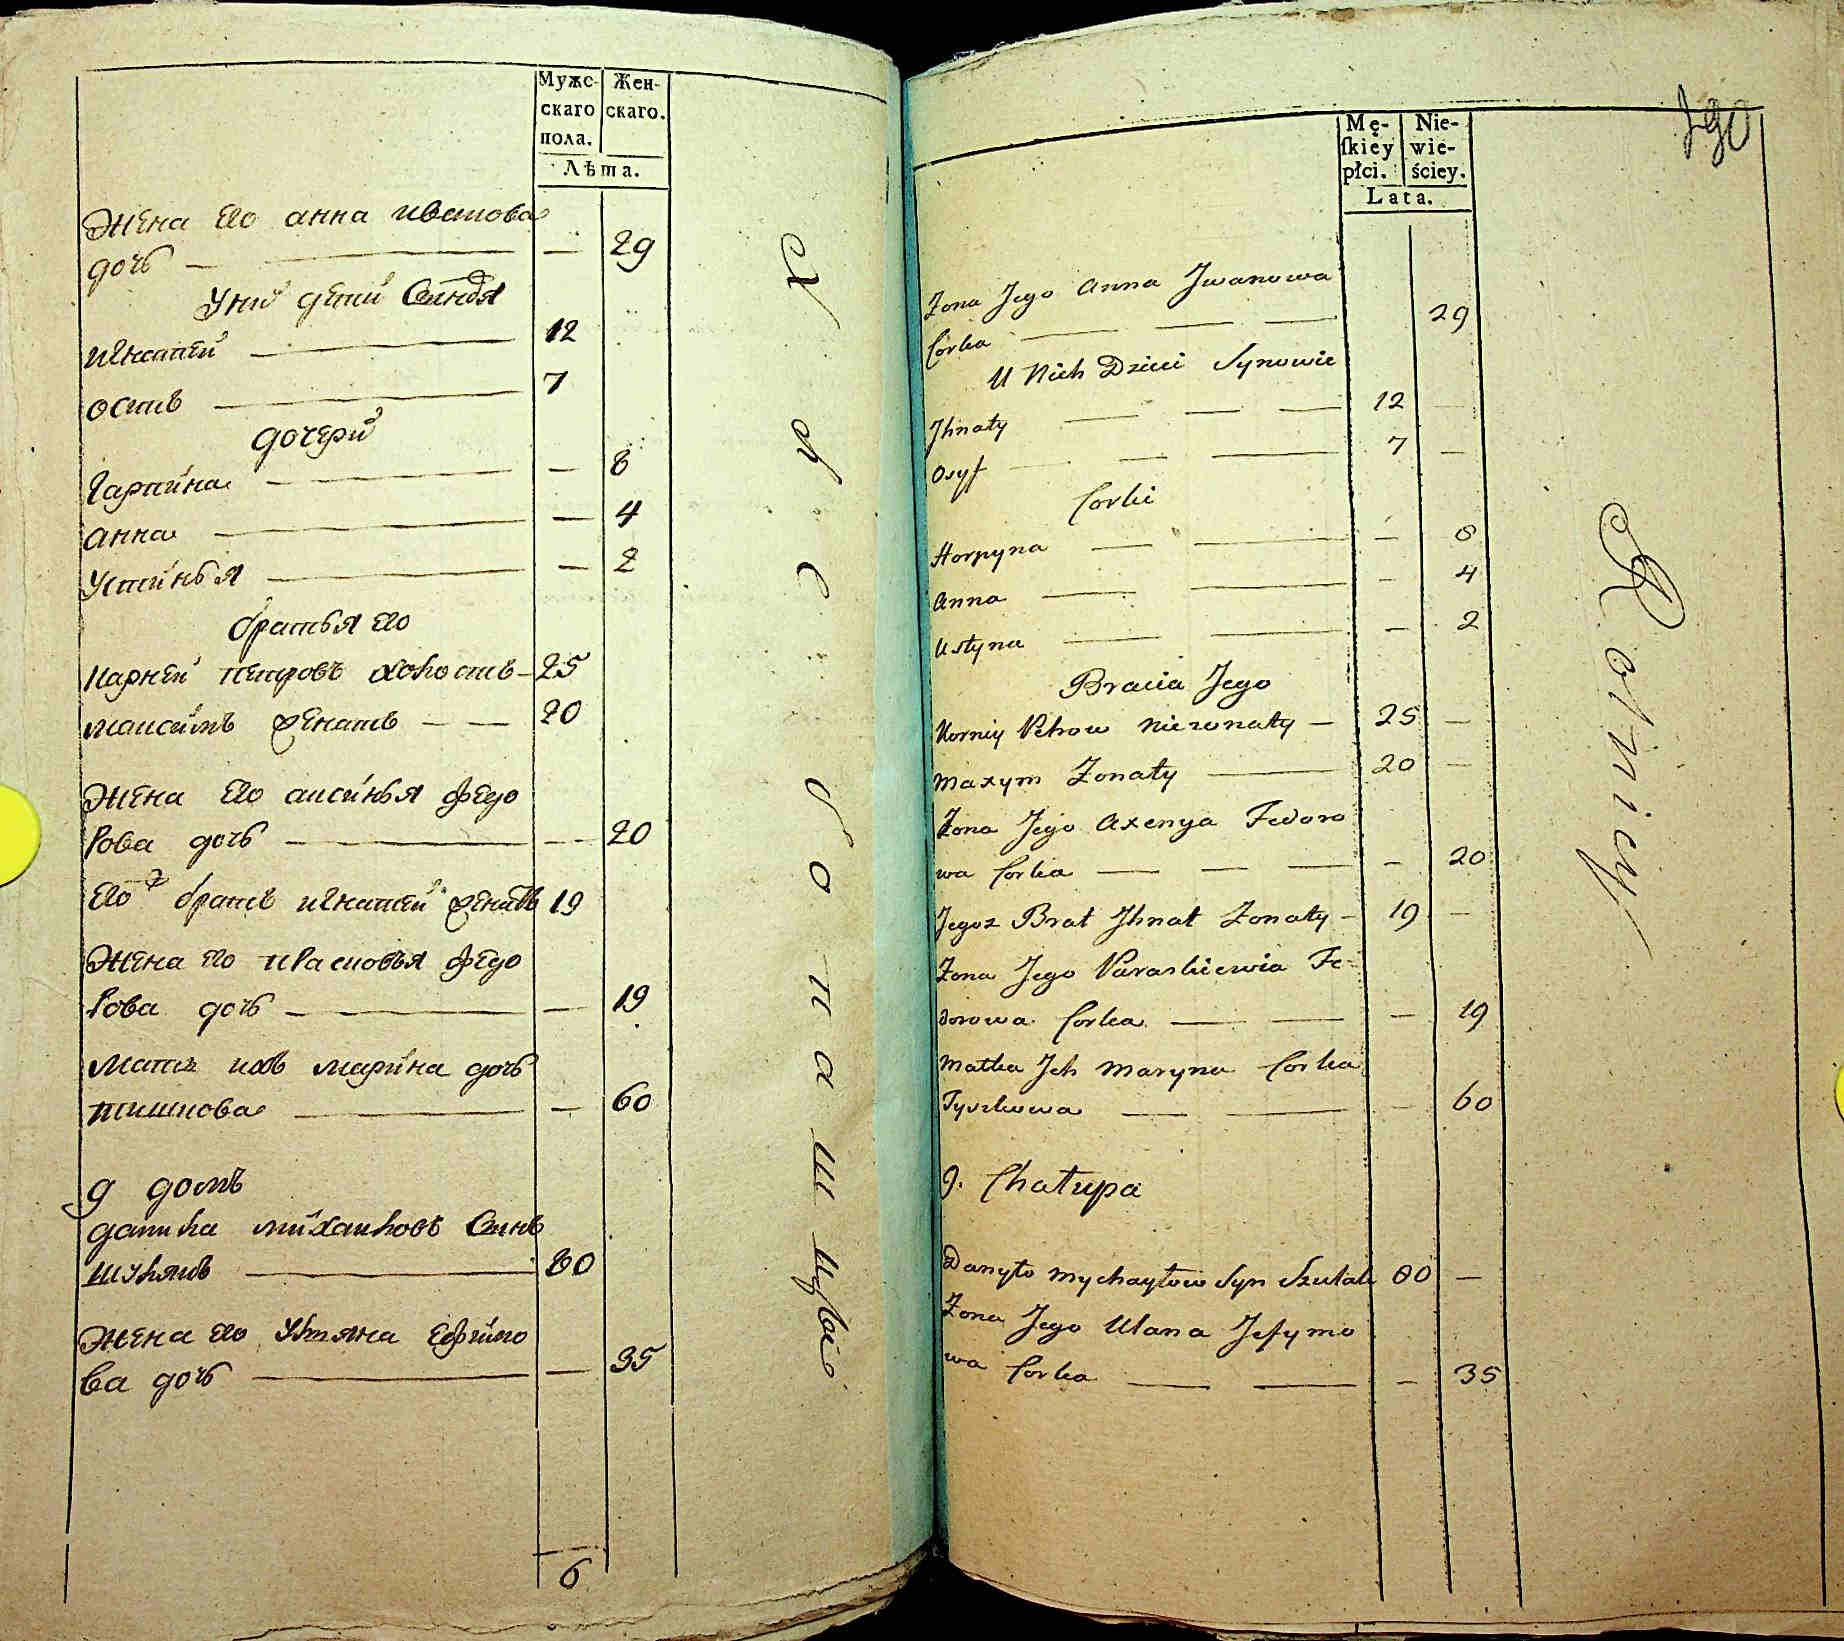 Мужс- Жен-
скаго скаго.
пола.
Лѣта.
Жена его анна иванова
дочь — — 29
у них дети Синовя
игнатей — 12
осипъ — 7
дочери
Гарпина — — 8
анна — — 4
Устинья — — 2
братья его
карней петровъ холостъ — 25
максимъ женатъ — — 20
Жена его аксинья федо
рова дочь — — 20
его ж братъ игнатей женатъ 19
Жена его прасковья федо
рова дочь — — 19
мать ихъ марина дочь
тишкова — — 60
9 домъ
данила михаиловъ Синъ
шулякъ — 80
Жена его Ульяна ефимо
ва дочь — — 35
6
хлебопашцы
190
Mę- Nie-
ſkiey wie-
płci. ściey.
Lata.
Zona Jego Anna Jwanowa
Corka — — — 29
U Nich Dzieci Synowie
Jhnaty — — — 12 —
Osyf — — — 7 —
Corki
Horpyna — — — 8
Anna — — — 4
Ustyna — — — 2
Bracia Jego
Korniy Petrow Niezonaty — 25 —
Maxym Zonaty — 20 —
Zona Jego Axenya Fedoro
wa Corka — — — — 20
Jegoz Brat Jhnat Zonaty — 19 —
Zona Jego Paraskiewia Fe-
dorowa Corka — — — 19
Matka Jch Maryna Corka
Tyszkowa — — — 60
9. Chałupa
Danyło Mychayłow Syn Szulak 80 —
Zona Jego Ulana Jefymo
wa Corka — — — 35
Rolnicy